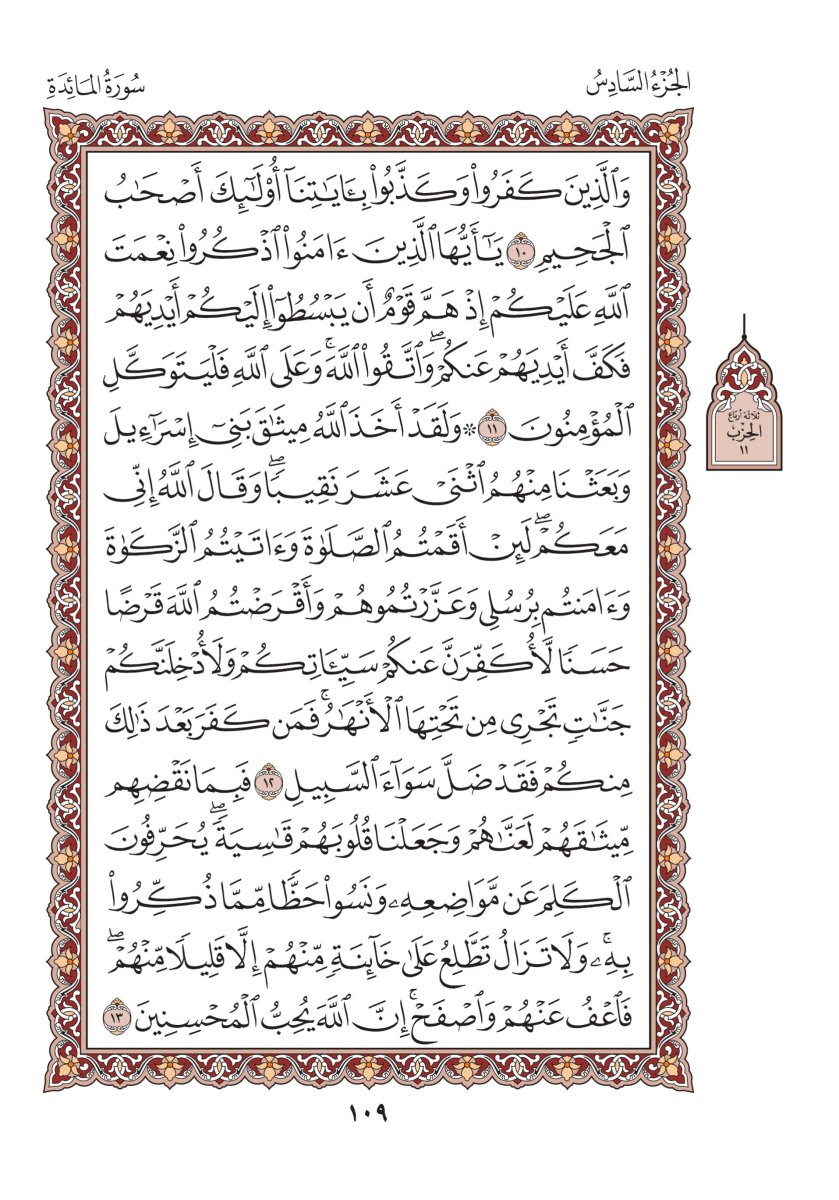 الجُزْءُ السَّادِسُ
سُورَةُ المَائِدَةِ
وَٱلَّذِينَ كَفَرُواْ وَكَذَّبُواْ بِـَٔايَٰتِنَآ أُوْلَٰٓئِكَ أَصْحَٰبُ
ٱلْجَحِيمِ ١٠ يَٰٓأَيُّهَا ٱلَّذِينَ ءَامَنُواْ ٱذْكُرُواْ نِعْمَتَ
ٱللَّهِ عَلَيْكُمْ إِذْ هَمَّ قَوْمٌ أَن يَبْسُطُوٓاْ إِلَيْكُمْ أَيْدِيَهُمْ
فَكَفَّ أَيْدِيَهُمْ عَنكُمْۖ وَٱتَّقُواْ ٱللَّهَۚ وَعَلَى ٱللَّهِ فَلْيَتَوَكَّلِ
ٱلْمُؤْمِنُونَ ١١ ۞ وَلَقَدْ أَخَذَ ٱللَّهُ مِيثَٰقَ بَنِيٓ إِسْرَٰٓءِيلَ
وَبَعَثْنَا مِنْهُمُ ٱثْنَيْ عَشَرَ نَقِيبٗاۖ وَقَالَ ٱللَّهُ إِنِّي
مَعَكُمْۖ لَئِنْ أَقَمْتُمُ ٱلصَّلَوٰةَ وَءَاتَيْتُمُ ٱلزَّكَوٰةَ
وَءَامَنتُم بِرُسُلِي وَعَزَّرْتُمُوهُمْ وَأَقْرَضْتُمُ ٱللَّهَ قَرْضًا
حَسَنٗا لَّأُكَفِّرَنَّ عَنكُمْ سَيِّـَٔاتِكُمْ وَلَأُدْخِلَنَّكُمْ
جَنَّٰتٖ تَجْرِي مِن تَحْتِهَا ٱلْأَنْهَٰرُۚ فَمَن كَفَرَ بَعْدَ ذَٰلِكَ
مِنكُمْ فَقَدْ ضَلَّ سَوَآءَ ٱلسَّبِيلِ ١٢ فَبِمَا نَقْضِهِم
مِّيثَٰقَهُمْ لَعَنَّٰهُمْ وَجَعَلْنَا قُلُوبَهُمْ قَٰسِيَةٗۖ يُحَرِّفُونَ
ٱلْكَلِمَ عَن مَّوَاضِعِهِۦ وَنَسُواْ حَظّٗا مِّمَّا ذُكِّرُواْ
بِهِۦۚ وَلَا تَزَالُ تَطَّلِعُ عَلَىٰ خَآئِنَةٖ مِّنْهُمْ إِلَّا قَلِيلٗا مِّنْهُمْۖ
فَٱعْفُ عَنْهُمْ وَٱصْفَحْۚ إِنَّ ٱللَّهَ يُحِبُّ ٱلْمُحْسِنِينَ ١٣
ثلاثة أرباع
الحِزْب
١١
١٠٩